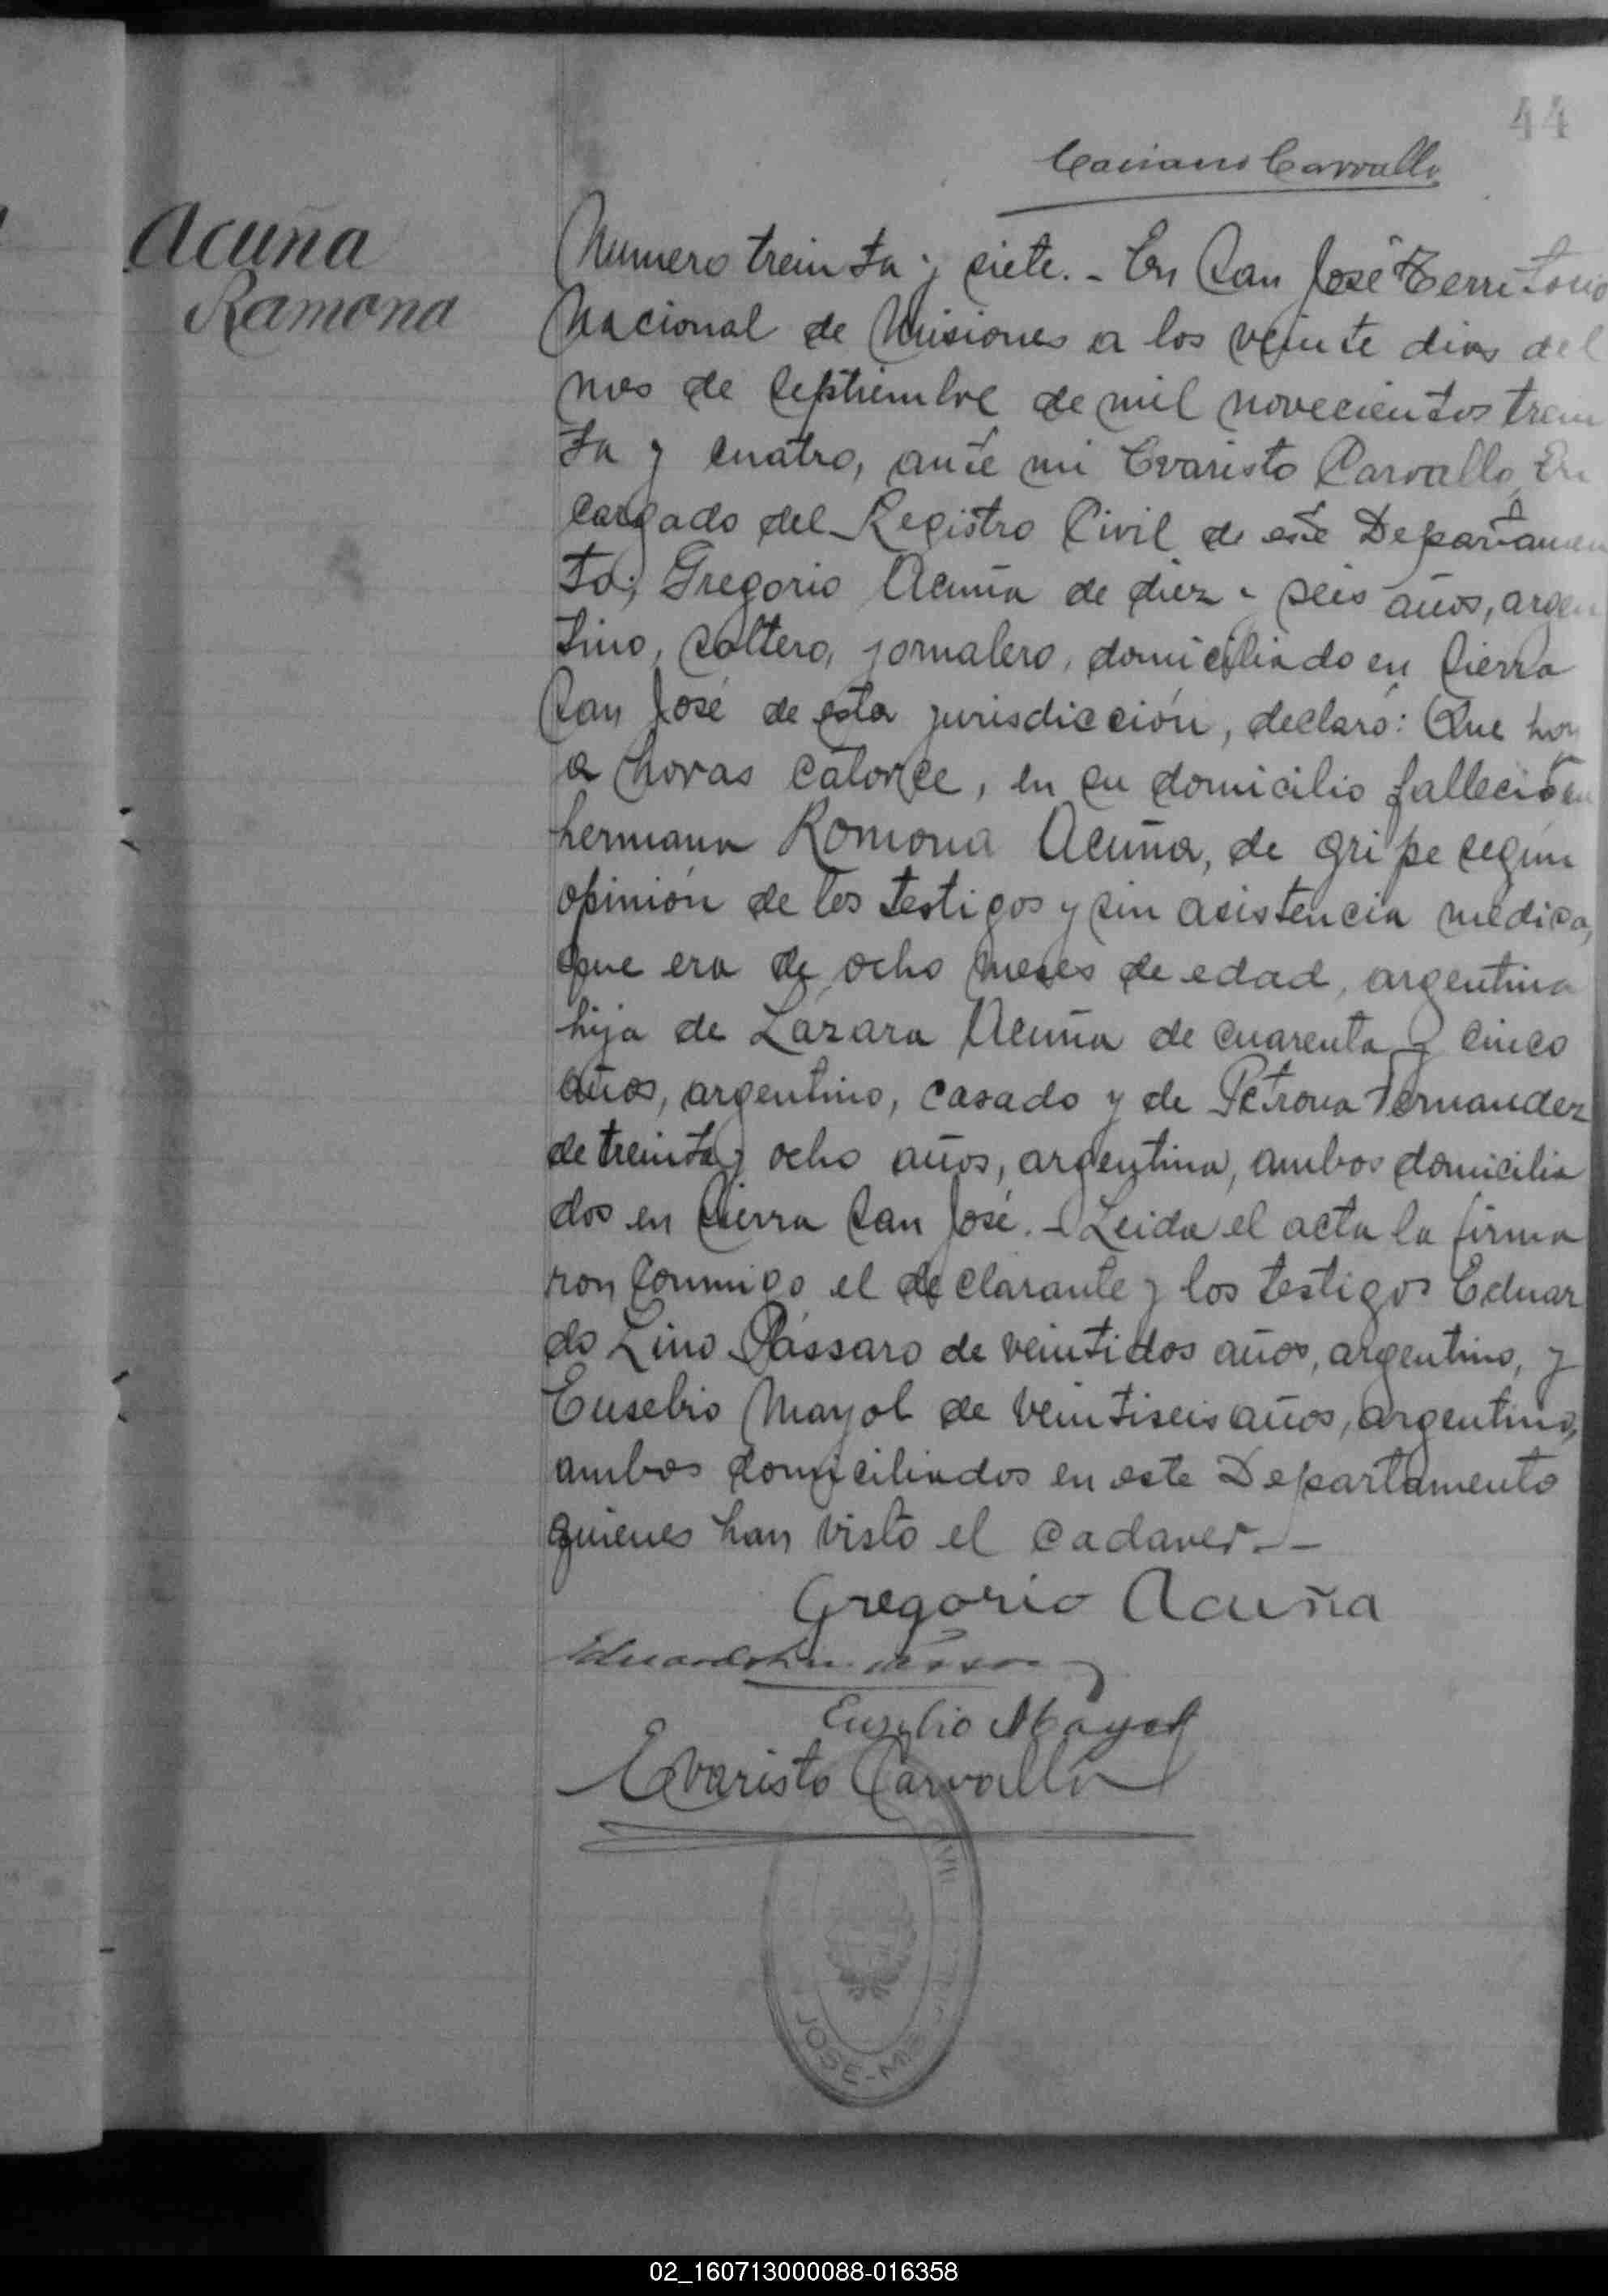 44
Casiano Carvallo
Acuña
Ramona
Numero treinta y siete. - En San José Territorio
Nacional de Misiones a los veinte dias del
mes de septiembre de mil novecientos trein
ta y cuatro, ante mi Evaristo Carvallo, En
cargado del Registro Civil de este Departamen
to; Gregorio Acuña de diez y seis años, argen
tino, soltero, jornalero, domiciliado en Sierra
San José de esta jurisdicción, declaró: Que hoy
a horas catorce, en su domicilio falleció su
hermana Romona Acuña, de gripe según
opinión de los testigos y sin asistencia médica,
que era de ocho meses de edad, argentina
hija de Lázara Acuña de cuarenta y cinco
años, argentino, casado y de Petrona Fernandez
de treinta y ocho años, argentina, ambos domicilia
dos en Sierra San José. - Leida el acta la firma
ron conmigo el declarante y los testigos Eduar
do Lino Pássaro de veintidos años, argentino, y
Eusebio Mayol de veintiseis años, argentino,
ambos domiciliados en este Departamento
quienes han visto el cadaver. -
Gregorio Acuña
Eusebio Mayol
Evaristo Carvallo
JOSE-MIS
02_160713000088-016358